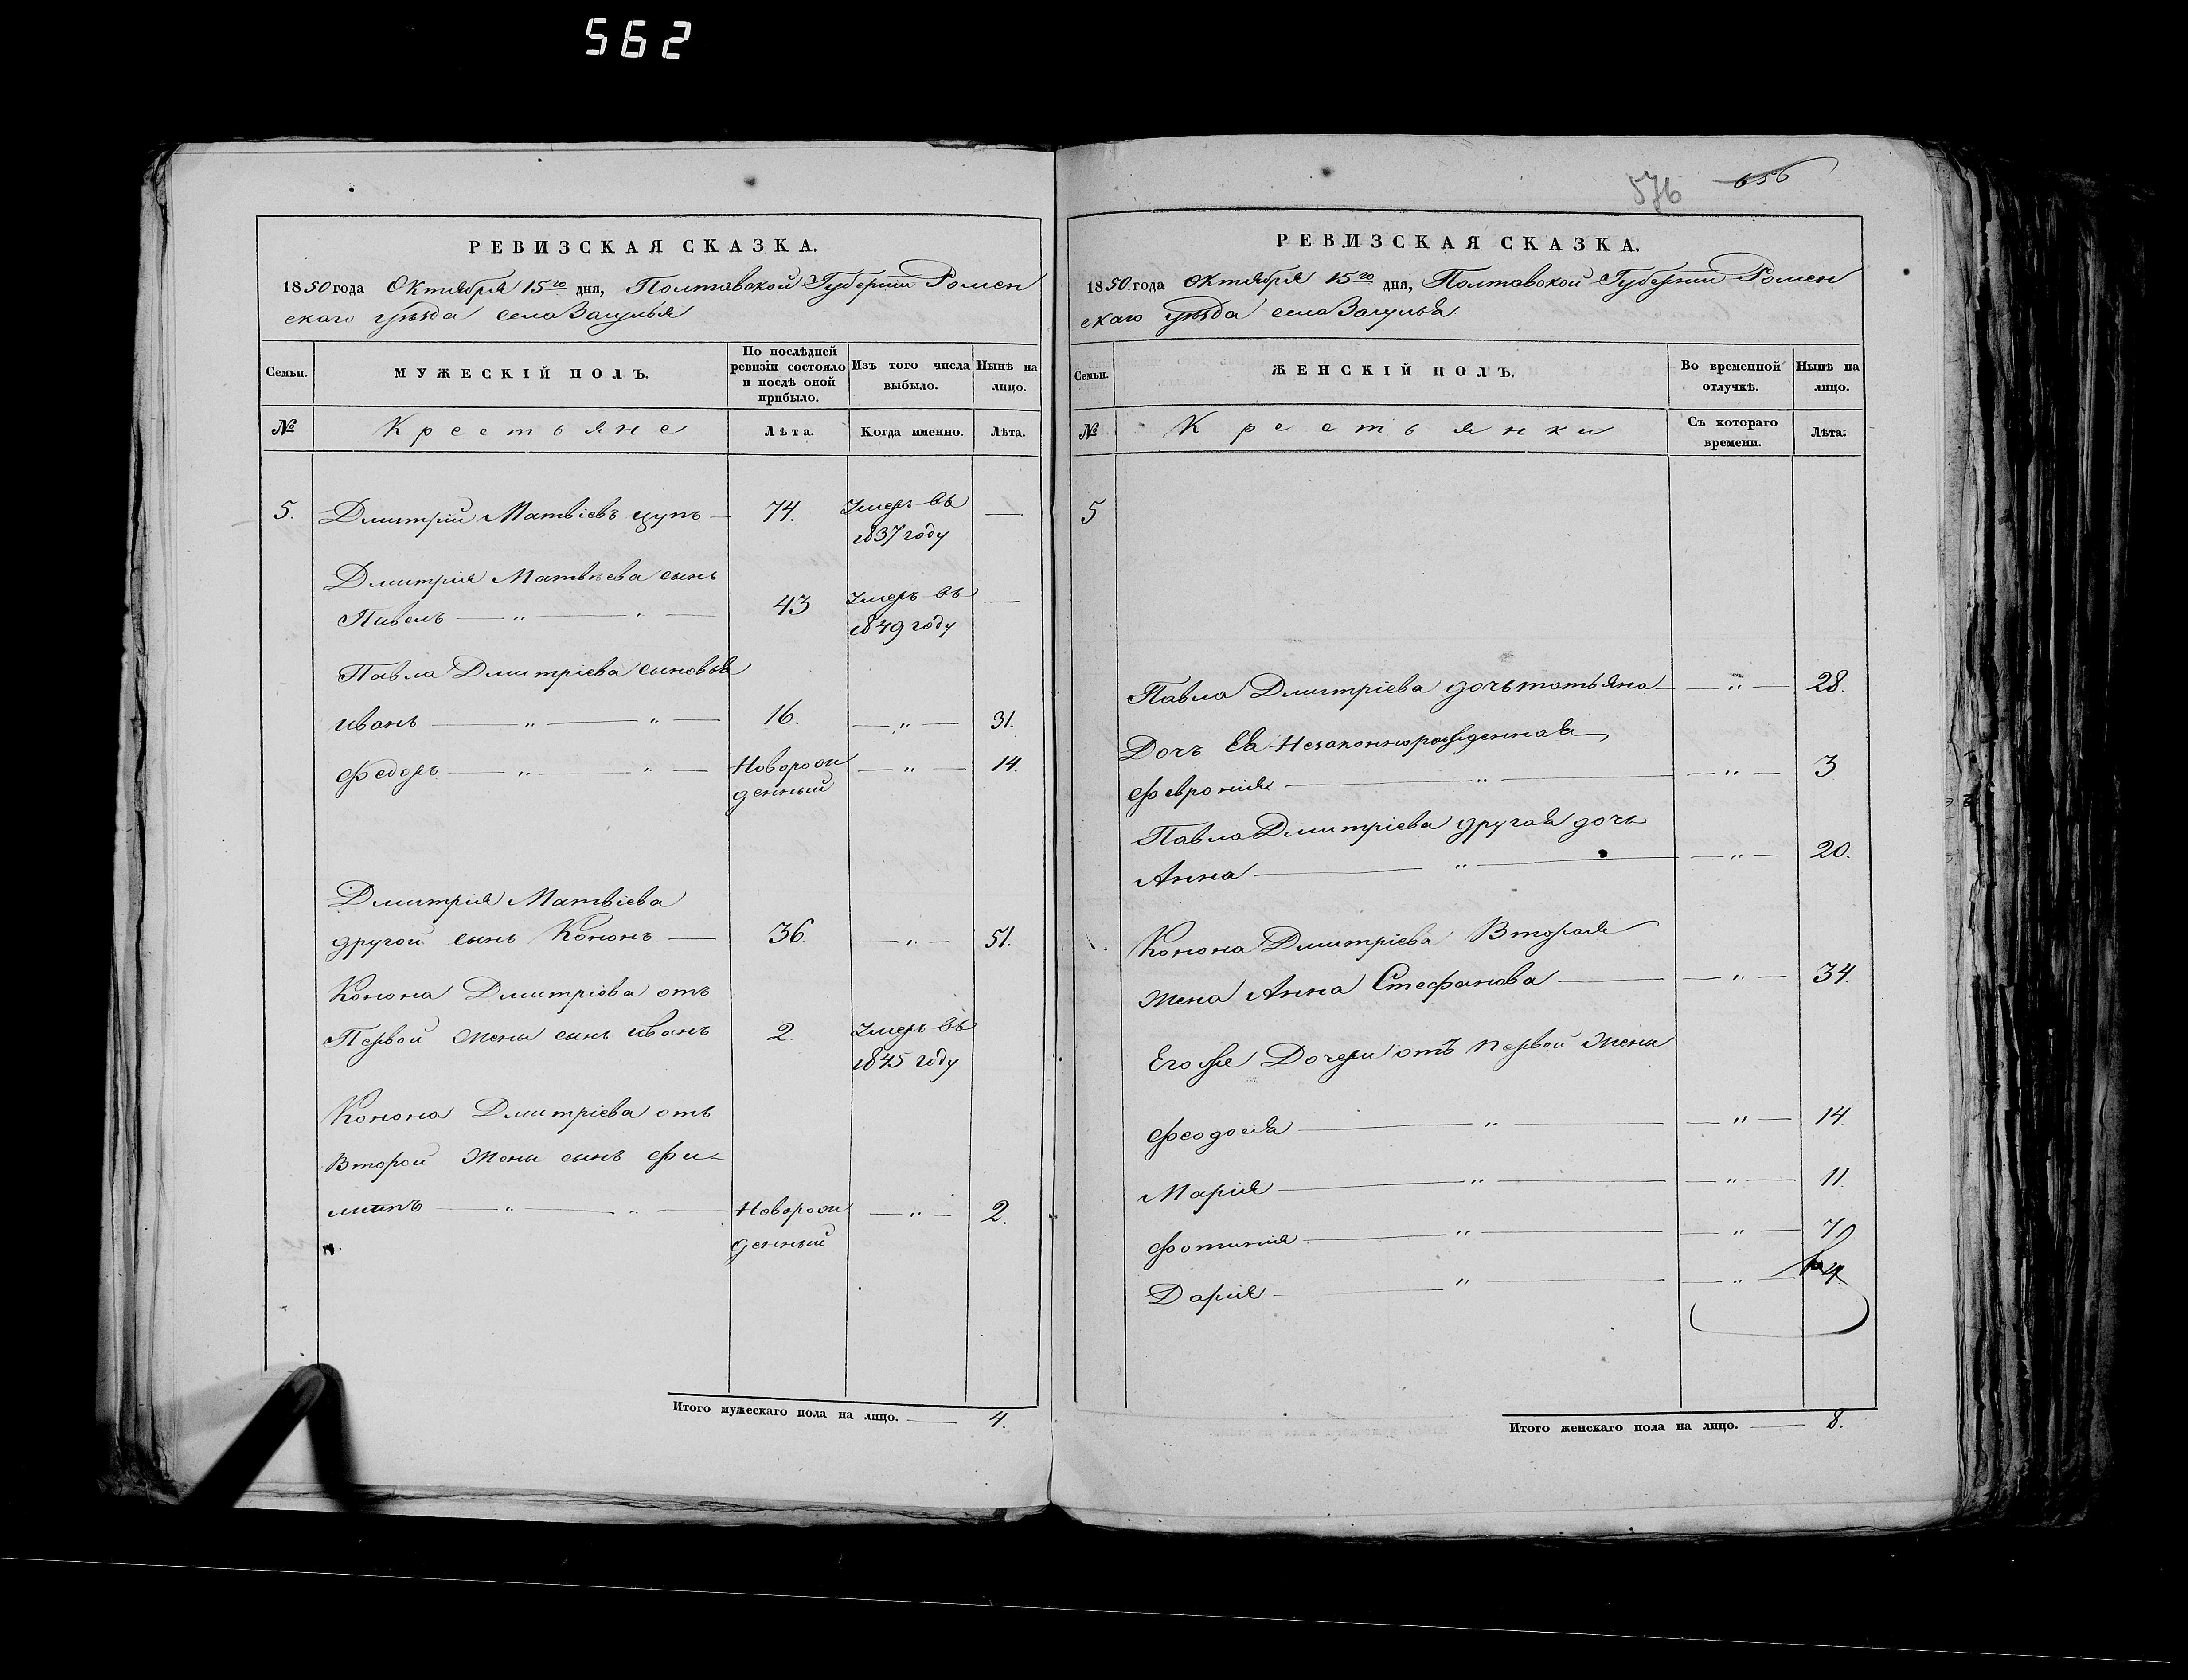 562
РЕВИЗСКАЯ СКАЗКА.
1850 года Октября 15го дня, Полтавской Губернии Ромен
скаго уѣзда села Загулья
Семьи.
МУЖЕСКІЙ ПОЛЪ.
По послѣдней ревизіи состояло и послѣ оной прибыло.
Изъ того числа выбыло.
Нынѣ на лицо.
№
Крестьяне
Лѣта.
Когда именно.
Лѣта.
5. Дмитрій Матвіевъ цупъ — 74. Умеръ въ —
1837 году
Дмитрія Матвѣева сынъ
Павелъ — „ — „ — 43 Умеръ въ —
1849 году
Павла Дмитріева сыновья
иванъ — „ — „ — 16. — „ — 31.
Федоръ — „ — „ — Новорож — „ — 14.
денный
Дмитрія Матвіева
другой сынъ Кононъ — 36. — „ — 51.
Конона Дмитріева отъ
Первой жены сынъ иванъ 2. Умеръ въ
1845 году
Конона Дмитріева отъ
Второй жены сынъ Фи-
липпъ — „ — „ — Новорож — „ — 2.
денный
Итого мужескаго пола на лицо. — 4.
576 656
РЕВИЗСКАЯ СКАЗКА.
1850 года Октября 15го дня, Полтавской Губернии Ромен
скаго уѣзда села Загулья
Семьи.
ЖЕНСКІЙ ПОЛЪ.
Во временной отлучкѣ.
Нынѣ на лицо.
№
Крестьянки
Съ котораго времени.
Лѣта.
5
Павла Дмитріева дочь татьяна — — „ — 28.
Дочь Ея Незаконнорожденная
Феврония — „ — — „ — 3
Павла Дмитріева другая дочь
Анна — „ — — „ — 20.
Конона Дмитріева Вторая
жена Анна Стефанова — — „ — 34.
Его же Дочери отъ первой жены
Феодосія — „ — — „ — 14.
Марія — „ — — „ — 11.
Фотинія — „ — — „ — 7
Дарія — „ — — „ — 4
Итого женскаго пола на лицо. — 8.